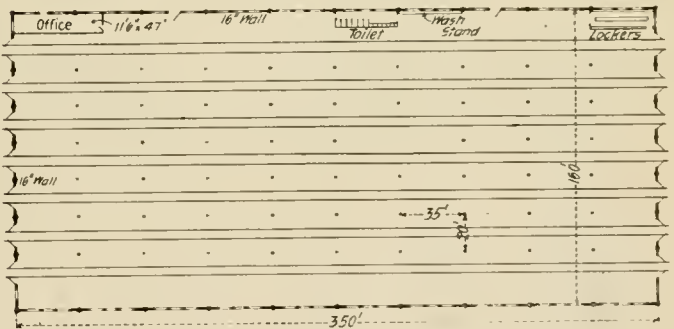 Office
11'6" x 47'
16" Wall
Toilet
Wash
Stand
Lockers
16" Wall
160'
35'
20'
350'